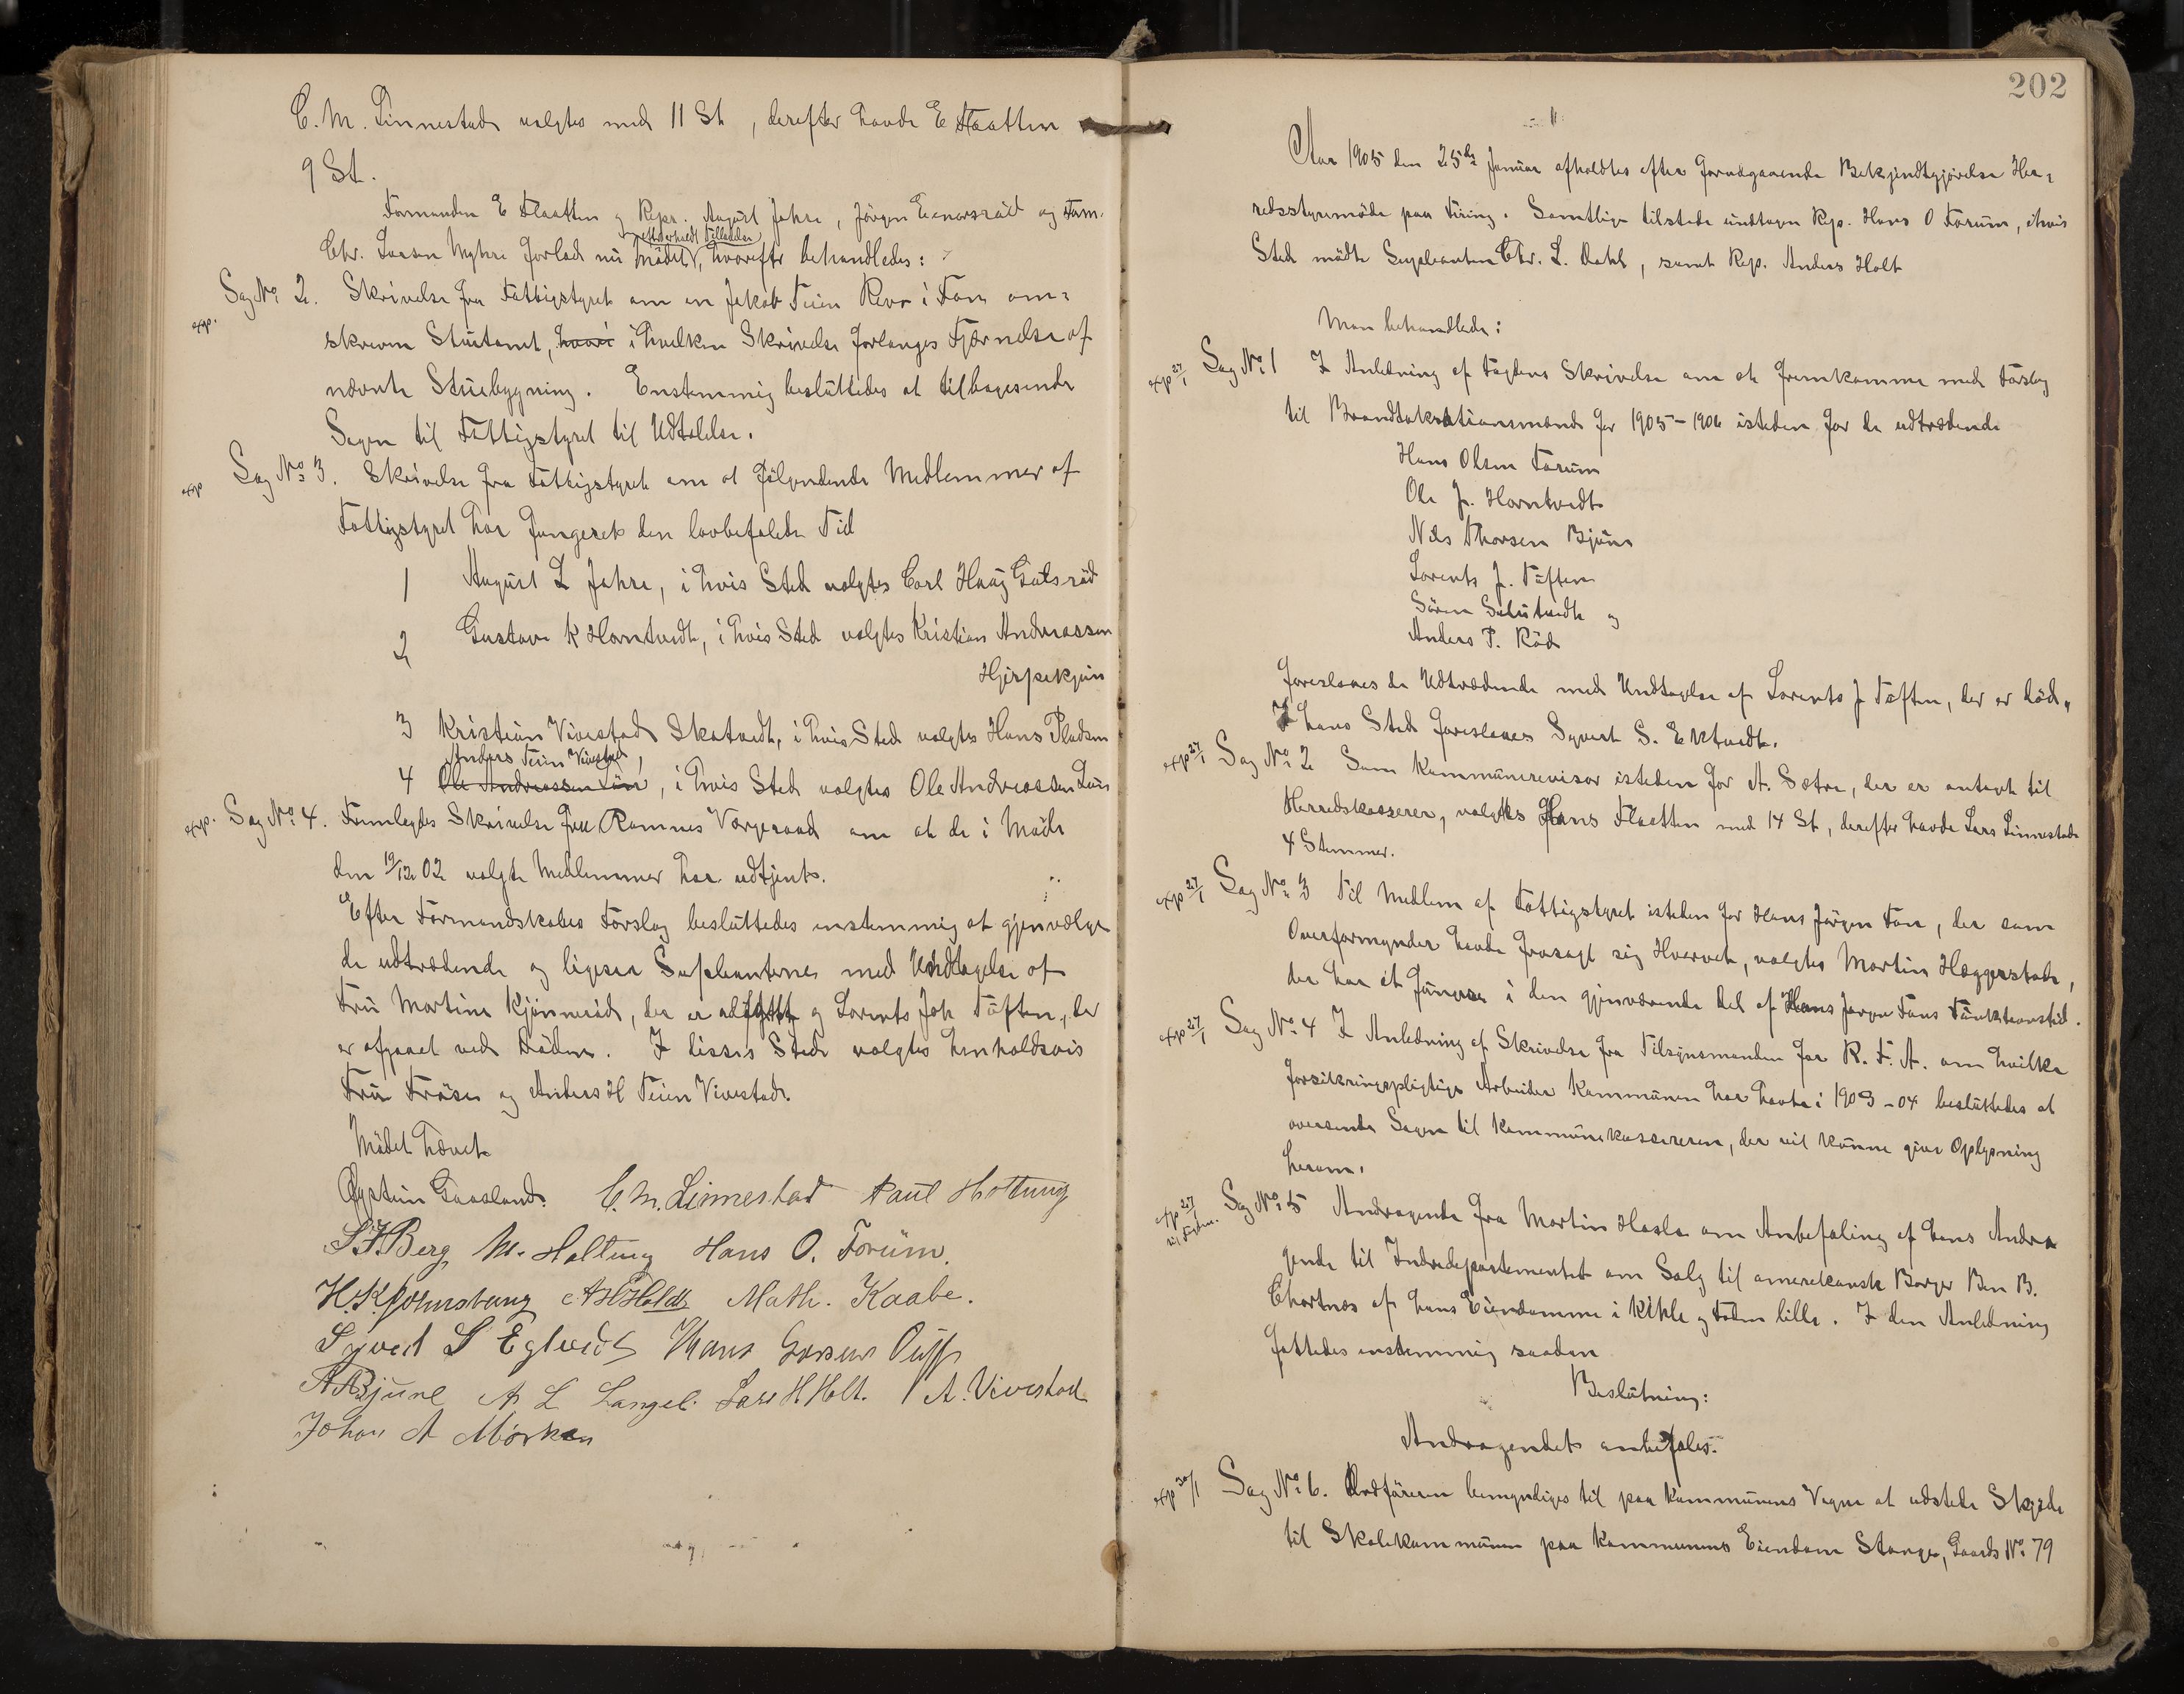 C. M. Linnestad valgtes med 11 St, derefter havde E Flaatten
9 St.
Formanden E Flaatten og Repr. August Jahre, Jörgen Einarsröd og
efter erholdt Tilladelse
Chr. Larsen Myhre forlod nu Mödet, hvorefter behandledes:
exp. Sag No 2. Skrivelse fra Fattigstyret om en Jakob Teien Revo i Fon om=
skreven Stuetomt, hvori i hvilken Skrivelse forlanges Fjernelse af
nævnte Stuebygning. Enstemmig besluttedes at tilbagesende
Sagen til Fattigstyret til Udtalelse.
exp Sag No 3. Skrivelse fra Fattigstyret om at følgendende Medlemmer af
Fattigstyret har fungeret den lovbefalede Tid
1 August L Jahre, i hvis Sted valgtes Carl Haug Gulsröd
2 Gustav K Horntvedt, i hvis Sted valgtes Kristian Andreassen
Hjerpekjøn
3 Kristian Vivestad Skatvedt, i hvis Sted valgtes Hans Pladsen
Anders Teien Vivestad,
4 Ole Andreassen Lun, i hvis Sted valgtes Ole Andreassen Lun
exp. Sag No 4. Fremlagdes Skrivelse fra Ramnes Værgeraad om at de i Möde
den 19/12 02 valgte Medlemmer har udtjent.
Efter Formandskabets Forslag besluttedes enstemmig at gjenvælge
de udtrædende og ligesaa Supleanterne med Undtagelse af
Fru Martine Kjönneröd, der er udflyttet og Lorents Joh Töften, der
er afgaaet ved Döden. I disses Sted valgtes henholdsvis
Fru Fröse og Anders H Teien Vivestad.
Mödet hævet
Øystein Gaasland. C. M. Linnestad Paul Holtung
S. J. Berg M. Holtung Hans O. Forum.
H. K. Johnsbang A H Holdt Math. Kaabe.
Syvert S Egtvedt Hans Larsen
A. Bjune A L Langel. Lars H Holt. A. Vivestad
Johan A Mörken
202
Aar 1905 den 25de Januar afholdtes efter forudgaaende Bekjendtgjørelse Her=
redsstyremöde paa Firing. Samtlige tilstede undtagen Rep. Hans O Forum, i hvis
Sted mödte Supleanten Chr. L. Dahl, samt Rep. Anders Holt
Man behandlede:
exp 27/1 Sag No 1 I Anledning af Fogdens Skrivelse om at fremkomme med Forslag
til Brandtakstationsmænd for 1905-1906 isteden for de udtrædende
Hans Olsen Forum
Ole J. Horntvedt
Nils Thorsen Bjune
Lorents J. Töften
Sören Solutvedt og
Anders P. Röd
foreslaaes de Udtrædende med Undtagelse af Lorents J Töften, der er död,
I hans Sted foreslaaes Syvert S. Ektvedt.
exp 27/1 Sag No 2 Som Kommunerevisor isteden for A. Sætre, der er antaget til
Herredskasserer, valgtes Hans Flaatten med 14 St, derefter havde Lars Linnestad
4 Stemmer.
exp 27/1 Sag No 3 Til Medlem af Fattigstyret isteden for Hans Jörgen Fon, der som
Overformynder havde frasagt sig Hvervet, valgtes Martin Hæggerstad,
der har at fungere i den gjenværende Del af Hans Jørgen Fons Funktionstid.
exp 27/1 Sag No 4 I Anledning af Skrivelse fra Tilsynsmanden for R. F. A. om hvilke
forsikringspligtige Arbeider Kommunen har havt i 1903-04 besluttedes at
oversende Sagen til Kommunekassereren, der vil kunne give Oplysning
herom.
exp 27/1 Sag No 5 Andragende fra Martin Hasle om Anbefaling af hans Andra
gende til Indredepartementet om Salg til amerikansk Borger Ben B.
Chartnes af hans Eiendomme i Kihle og Foden lille. I den Anledning
fattedes enstemmig saadan
Beslutning:
Andragendet anbefales.
exp 30/1 Sag No 6. Ordföreren bemyndiges til paa Kommunens Vegne at udstede Skjöde
til Skolekommunen paa Kommunens Eiendom Stange, Gaards No 79